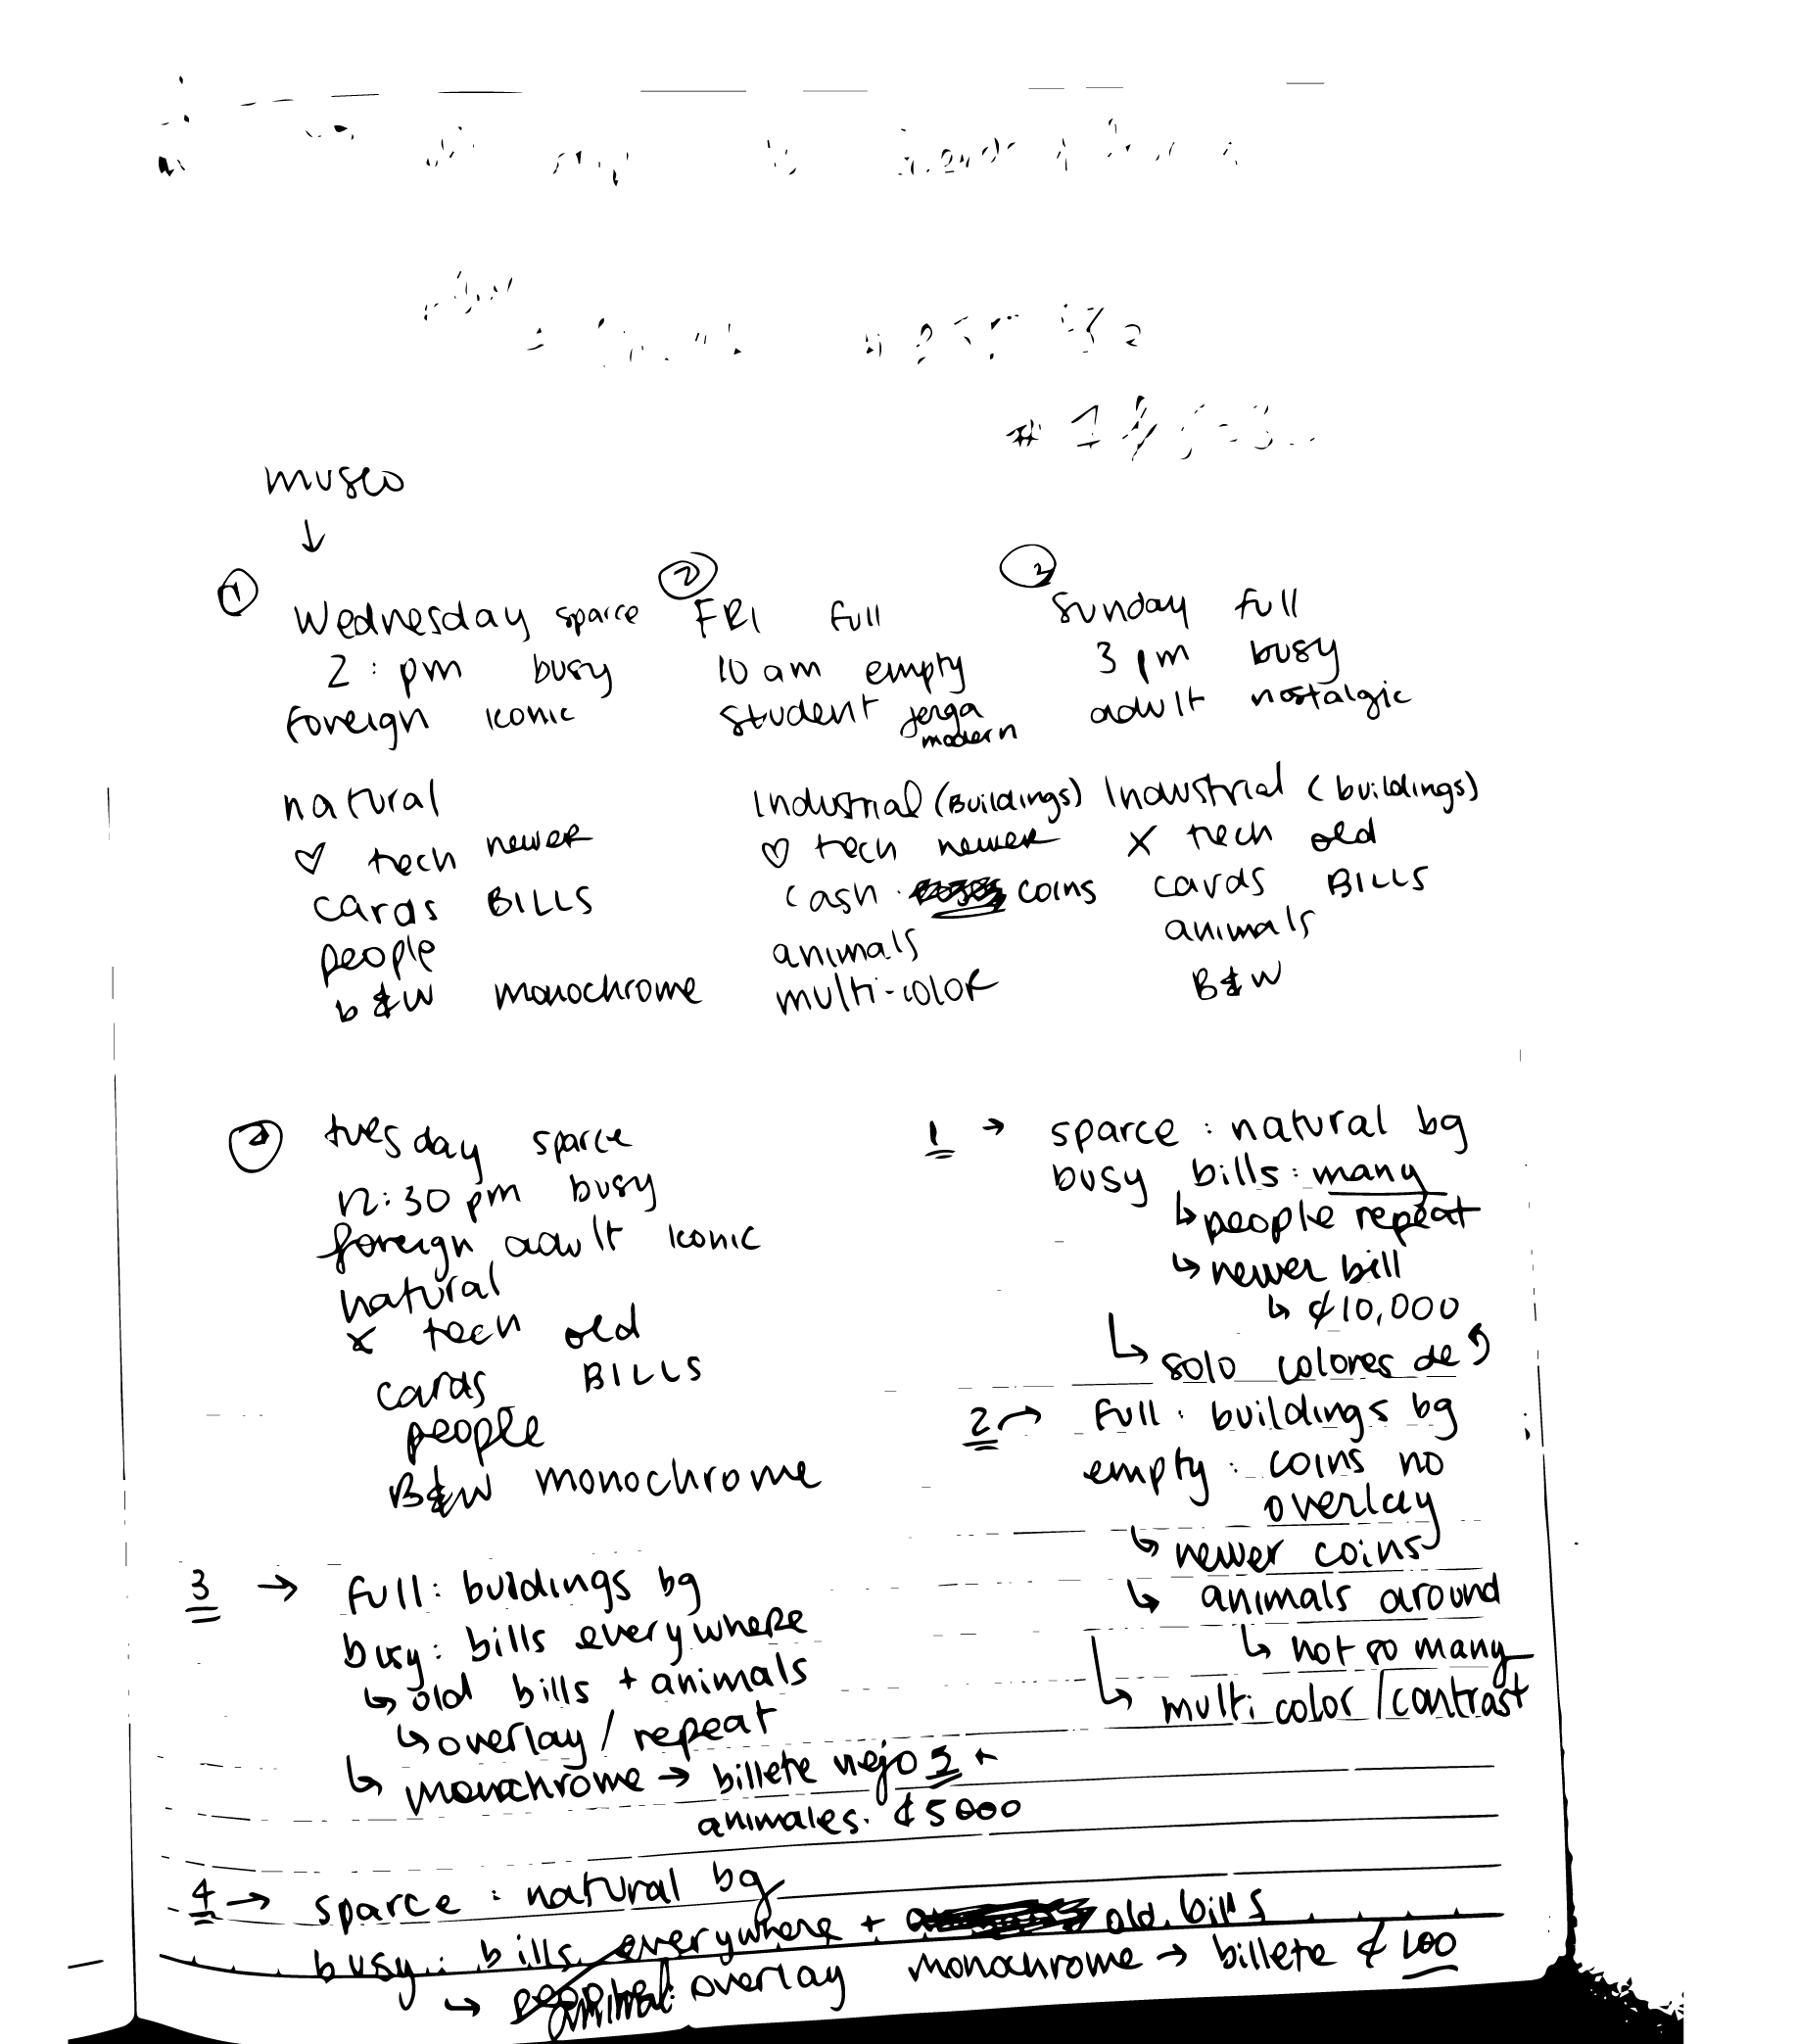 museo
↓
① Wednesday sparce
2: pm busy
foreign iconic
natural
♡ tech newer
cards BILLS
people
b&w monochrome
② FRI full
10 am empty
student jerga
modern
Industrial (Buildings)
♡ tech newer
cash coins
animals
multi-color
③ Sunday full
3 pm busy
adult nostalgic
Industrial (buildings)
x tech old
cards BILLS
animals
B&W
④ tuesday sparce
12:30 pm busy
foreign adult iconic
natural
x tech old
cards BILLS
people
B&W monochrome
1 → sparce: natural bg
busy bills: many
↳ people repeat
↳ newer bill
↳ ₡10,000
↳ solo colores de
2 → full: buildings bg
empty: coins no
overlay
↳ newer coins
↳ animals around
↳ not so many
↳ multi color/contrast
3 → full: buildings bg
busy: bills everywhere
↳ old bills + animals
↳ overlay / repeat
↳ monochrome → billete viejo 5 ←
animales. ₡5000
4 → sparce: natural bg
busy: bills everywhere + old bills
↳ overlay monochrome → billete ₡ 100